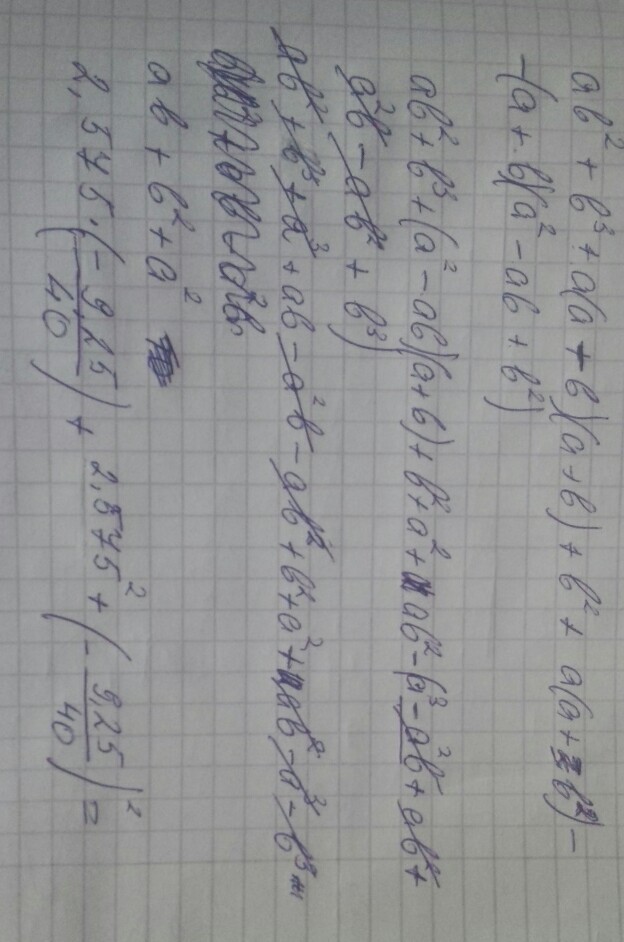 ab² + b³ + a(a - b)(a + b) + b² + a(a + b²) -
-(a + b)(a² - ab + b²)
ab² + b³ + (a² - ab)(a + b) + b² + a² + ab² - (a³ - a²b + ab² +
a²b - ab² + b³)
ab² + b³ + a³ + ab - a²b - ab² + b² + a² + ab² - a³ - b³
ab + b² + a²
2,575 · (- 9,25/40) + 2,575² + (- 9,25/40)² =